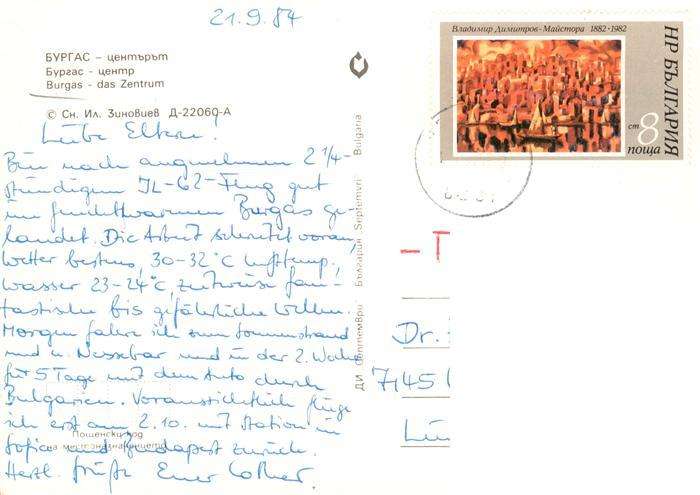 21.9.84
БУРГАС – центърът
Бургас - центр
Burgas - das Zentrum
© Сн. Ил. Зиновиев Д-22060-А
Liebe Eltern!
Bin nach angenehmen 2 1/4-
stündigem IL-62-Flug gut
im feuchtwarmen Burgas ge-
landet. Die Arbeit schreitet voran,
Wetter bestens, 30-32°C Lufttemp.,
Wasser 23-24°C, zeitweise fan-
tastische bis gefährliche Wellen.
Morgen fahre ich zum Sonnenstrand
und n. Nessebar und in der 2. Woche
für 5 Tage mit dem Auto durch
Bulgarien. Voraussichtlich fliege
ich erst am 2.10. mit Station in
Sofia und Budapest zurück.
Herzl. Grüße Euer Lothar.
Пощенски код
на местоназначението
ДИ Септември България Septemvri Bulgaria
Владимир Димитров-Майстора 1882-1982
НР БЪЛГАРИЯ
ст 8
поща
–T
Dr.
7145